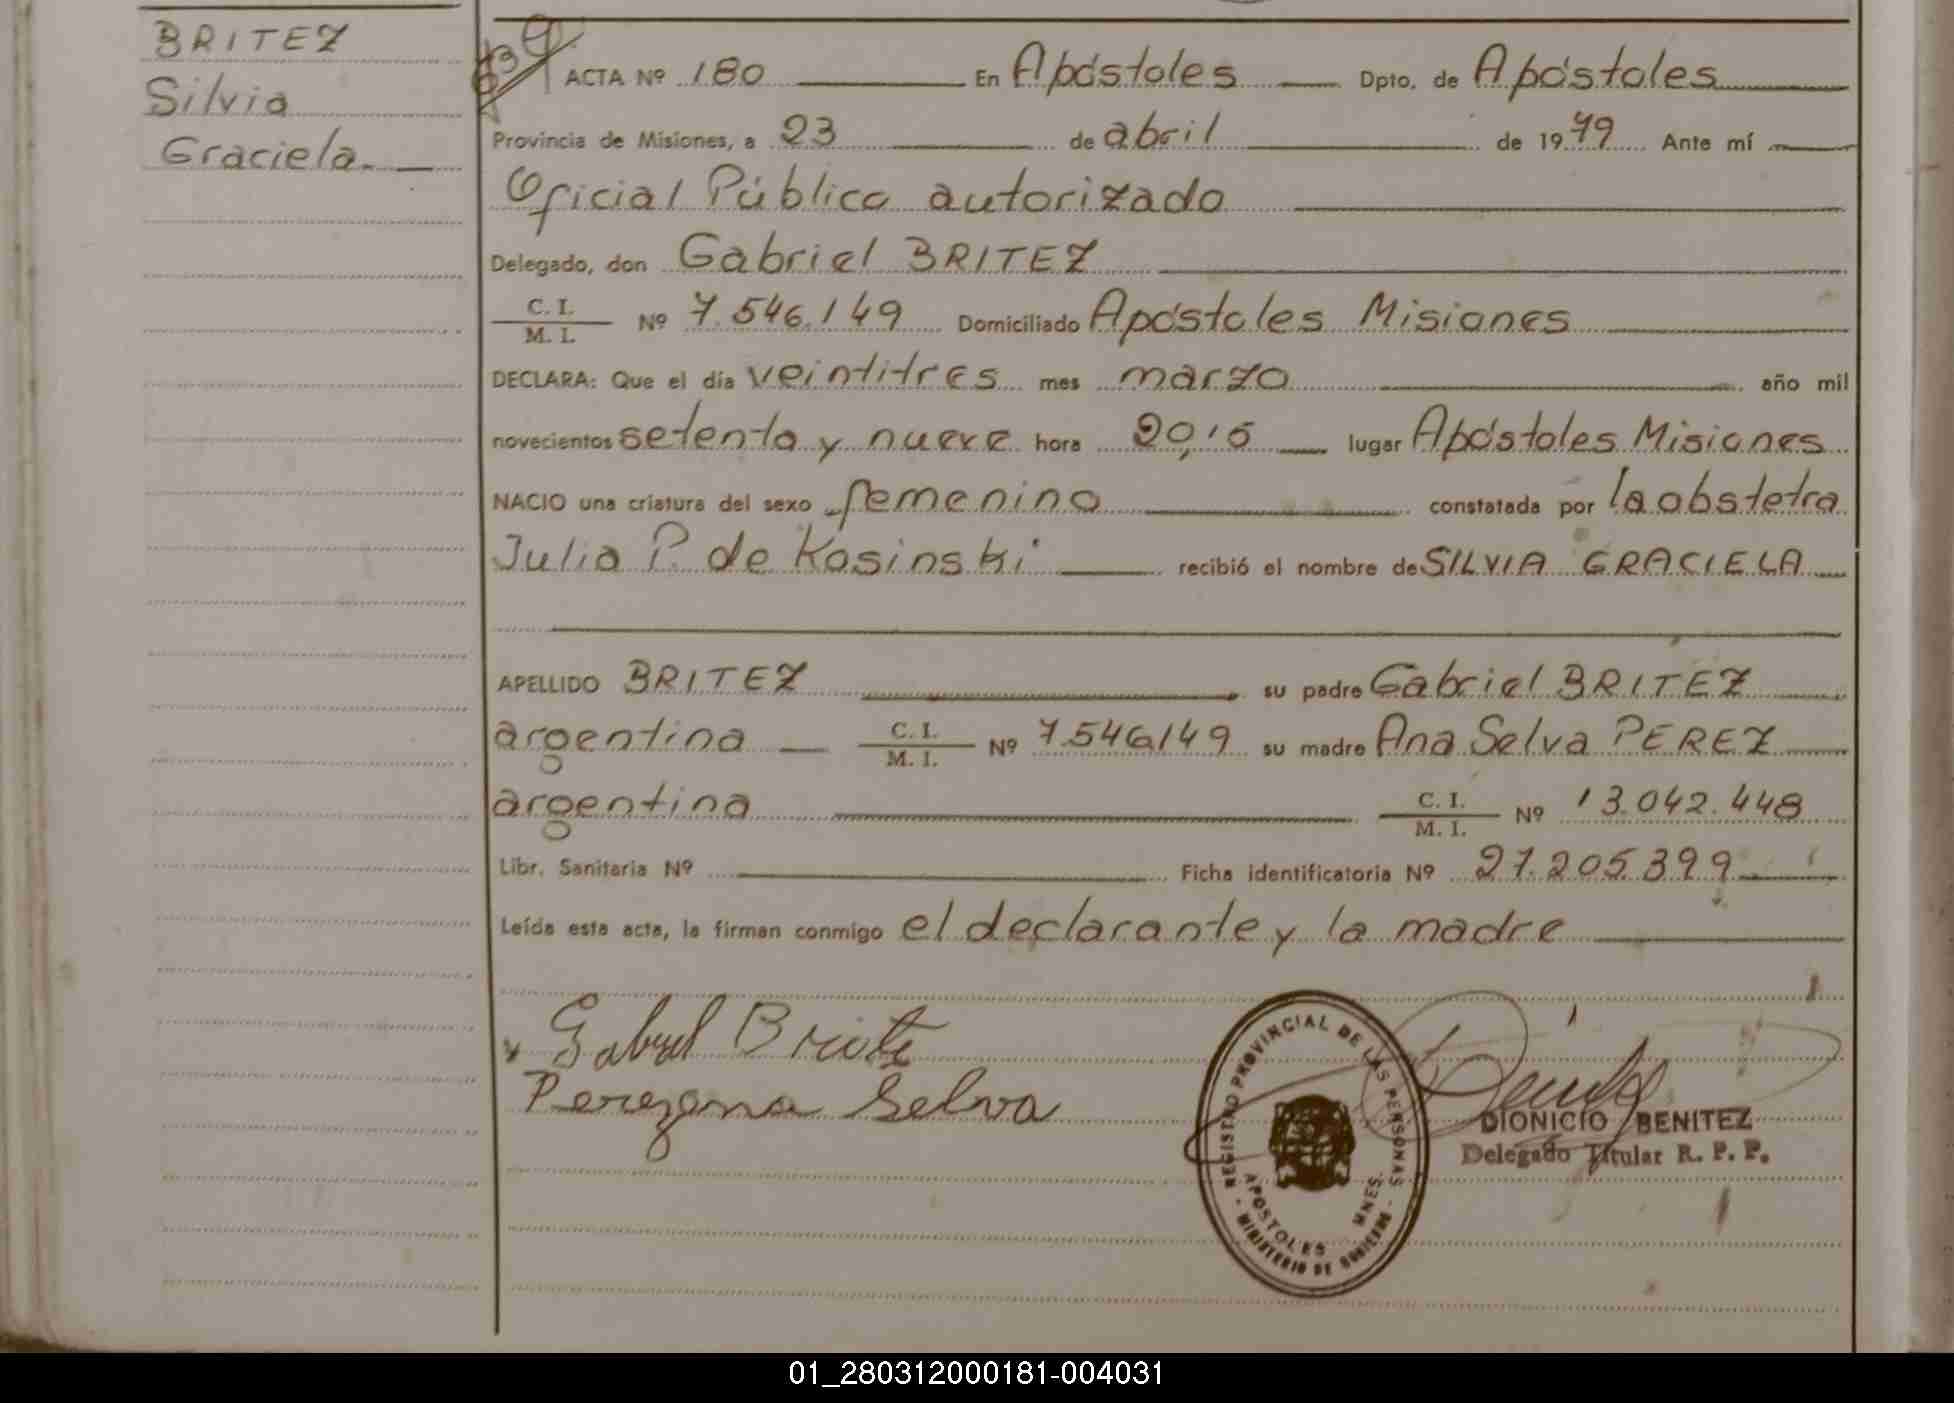 BRITEZ
Silvia
Graciela.
ACTA Nº 180 En Apóstoles Dpto. de Apóstoles
Provincia de Misiones, a 23 de abril de 1979 Ante mí
Oficial Público autorizado
Delegado, don Gabriel BRITEZ
C. I. / M. I. Nº 7.546.149 Domiciliado Apóstoles Misiones
DECLARA: Que el día veintitres mes marzo año mil
novecientos setenta y nueve hora 20,15 lugar Apóstoles Misiones
NACIO una criatura del sexo femenino constatada por la obstetra
Julia P. de Kosinski recibió el nombre de SILVIA GRACIELA
APELLIDO BRITEZ su padre Gabriel BRITEZ
argentina C. I. / M. I. Nº 7.546.149 su madre Ana Selva PEREZ
argentina C. I. / M. I. Nº 13.042.448
Libr. Sanitaria Nº Ficha identificatoria Nº 27.205.399
Leída esta acta, la firman conmigo el declarante y la madre
Gabriel
Perez ana Selva
REGISTRO PROVINCIAL DE LAS PERSONAS
APOSTOLES MNES.
MINISTERIO DE GOBIERNO
DIONICIO BENITEZ
Delegado Titular R. P. P.
01_280312000181-004031